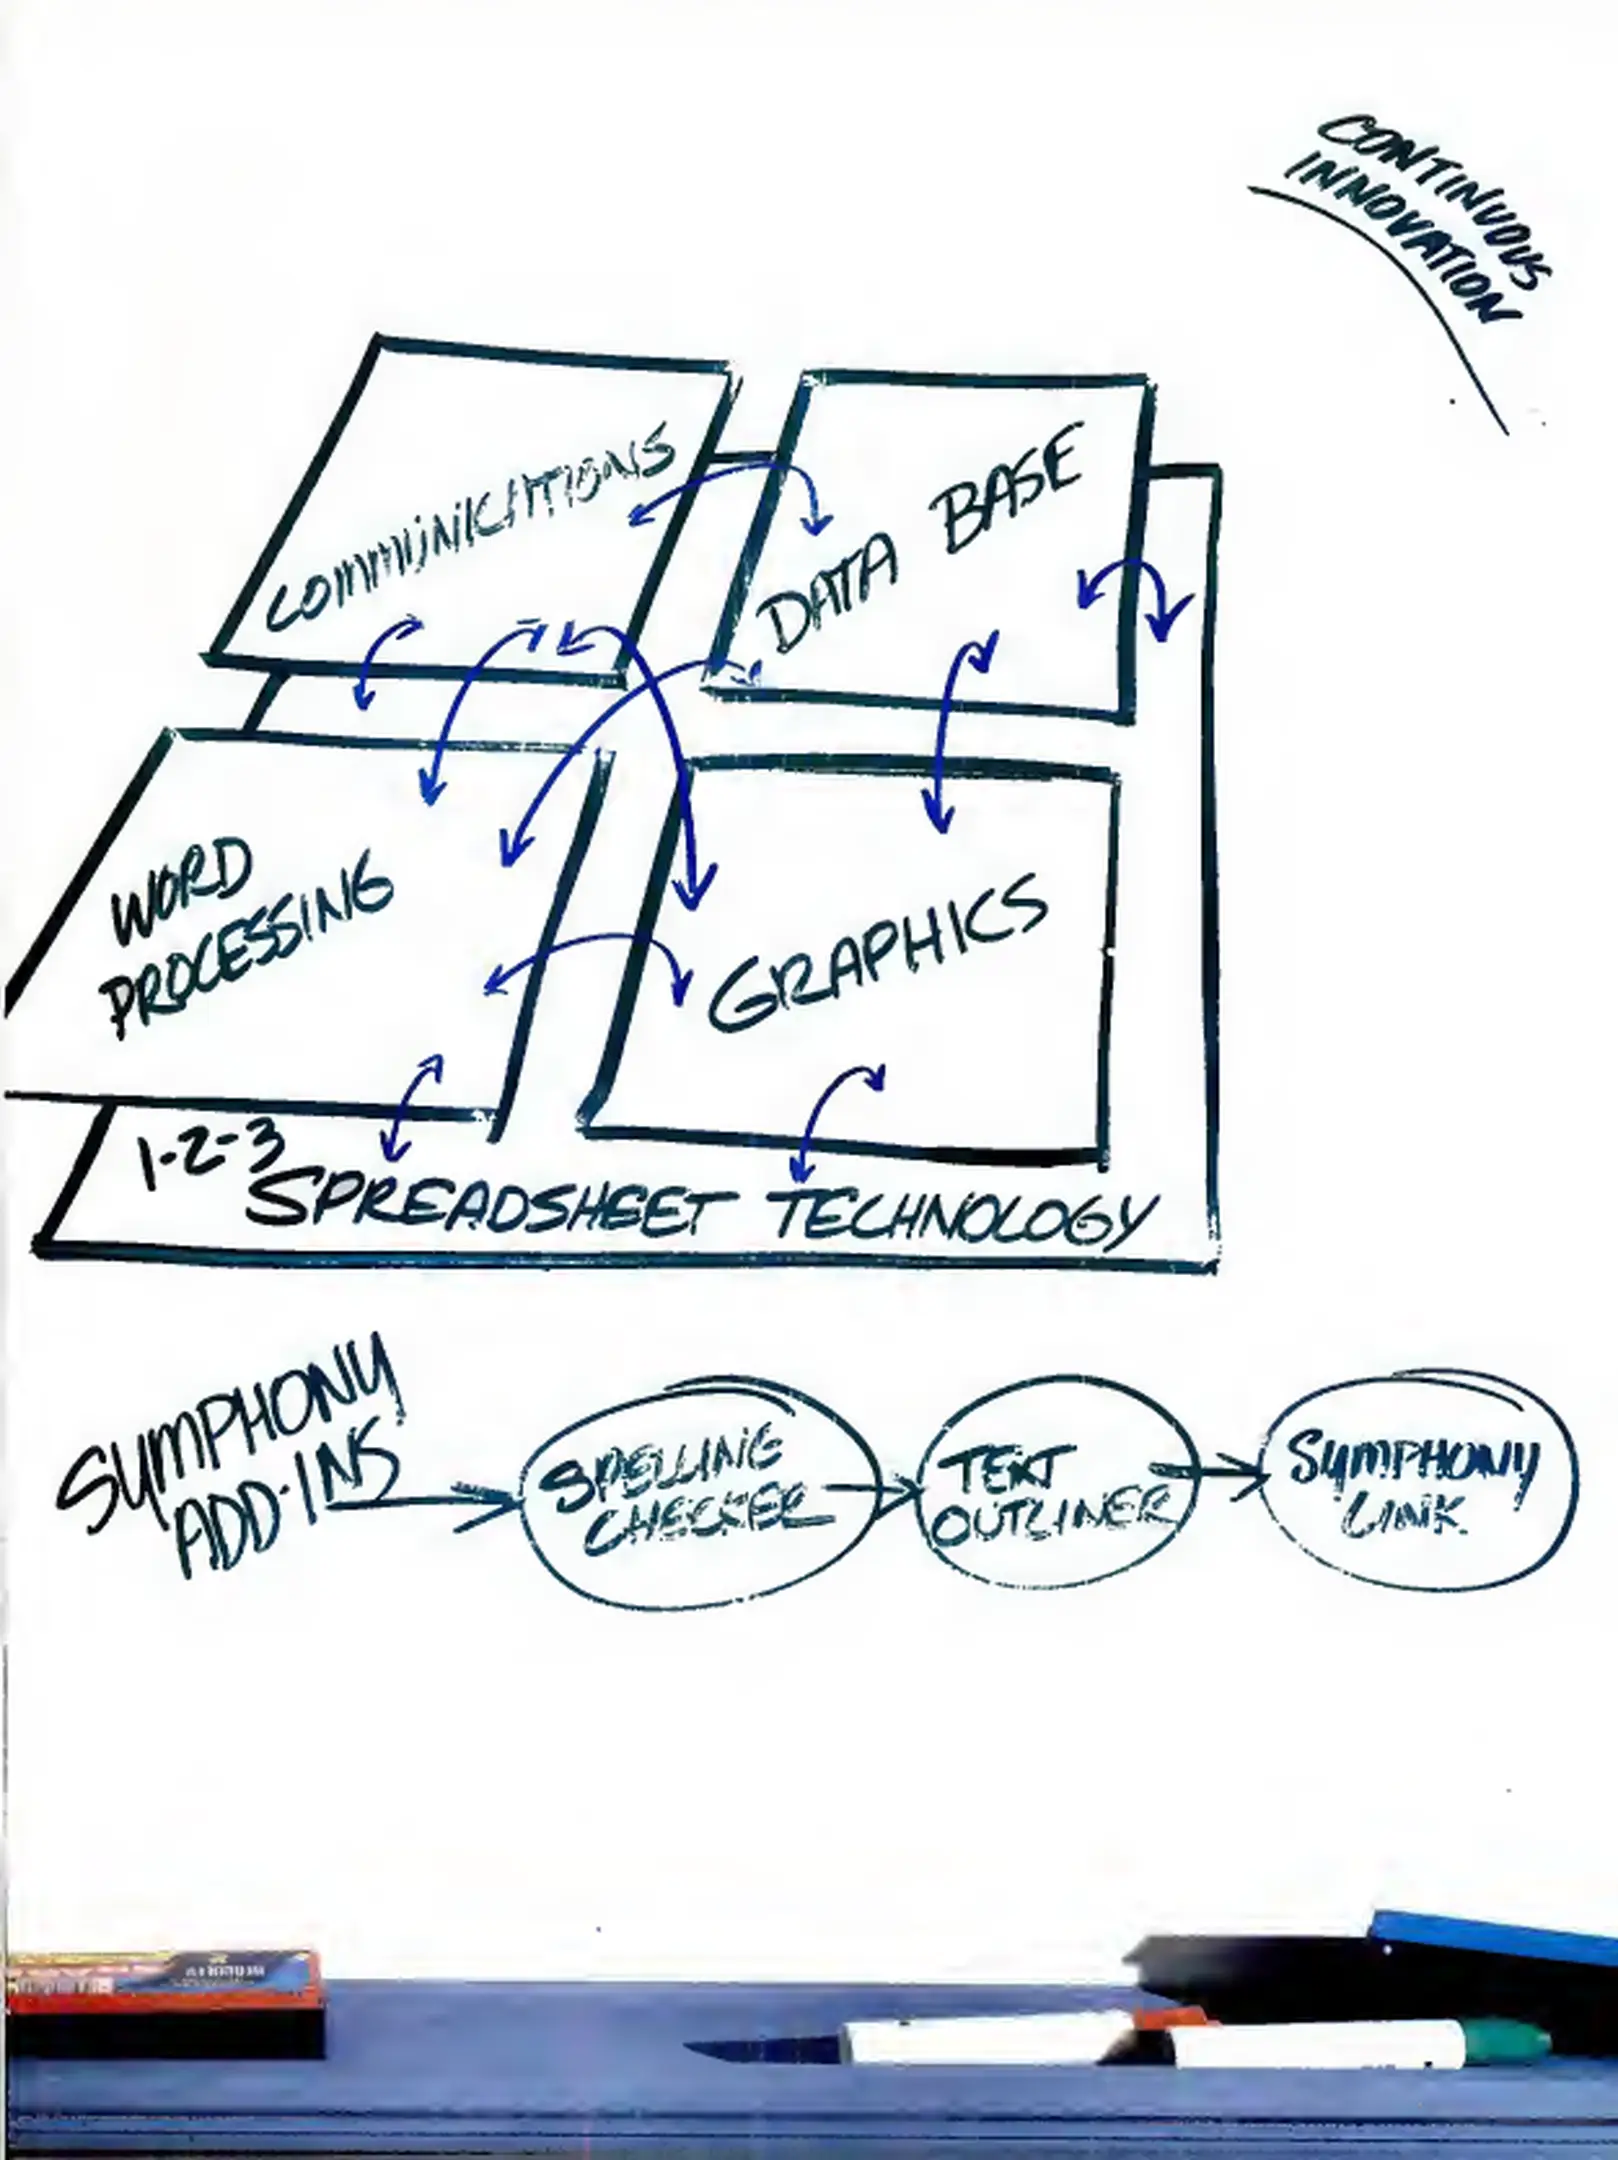 CONTINUOUS
INNOVATION
COMMUNICATIONS
DATA BASE
WORD
PROCESSING
GRAPHICS
1-2-3
SPREADSHEET TECHNOLOGY
SYMPHONY
ADD-INS
SPELLING
CHECKER
TEXT
OUTLINER
SYMPHONY
LINK